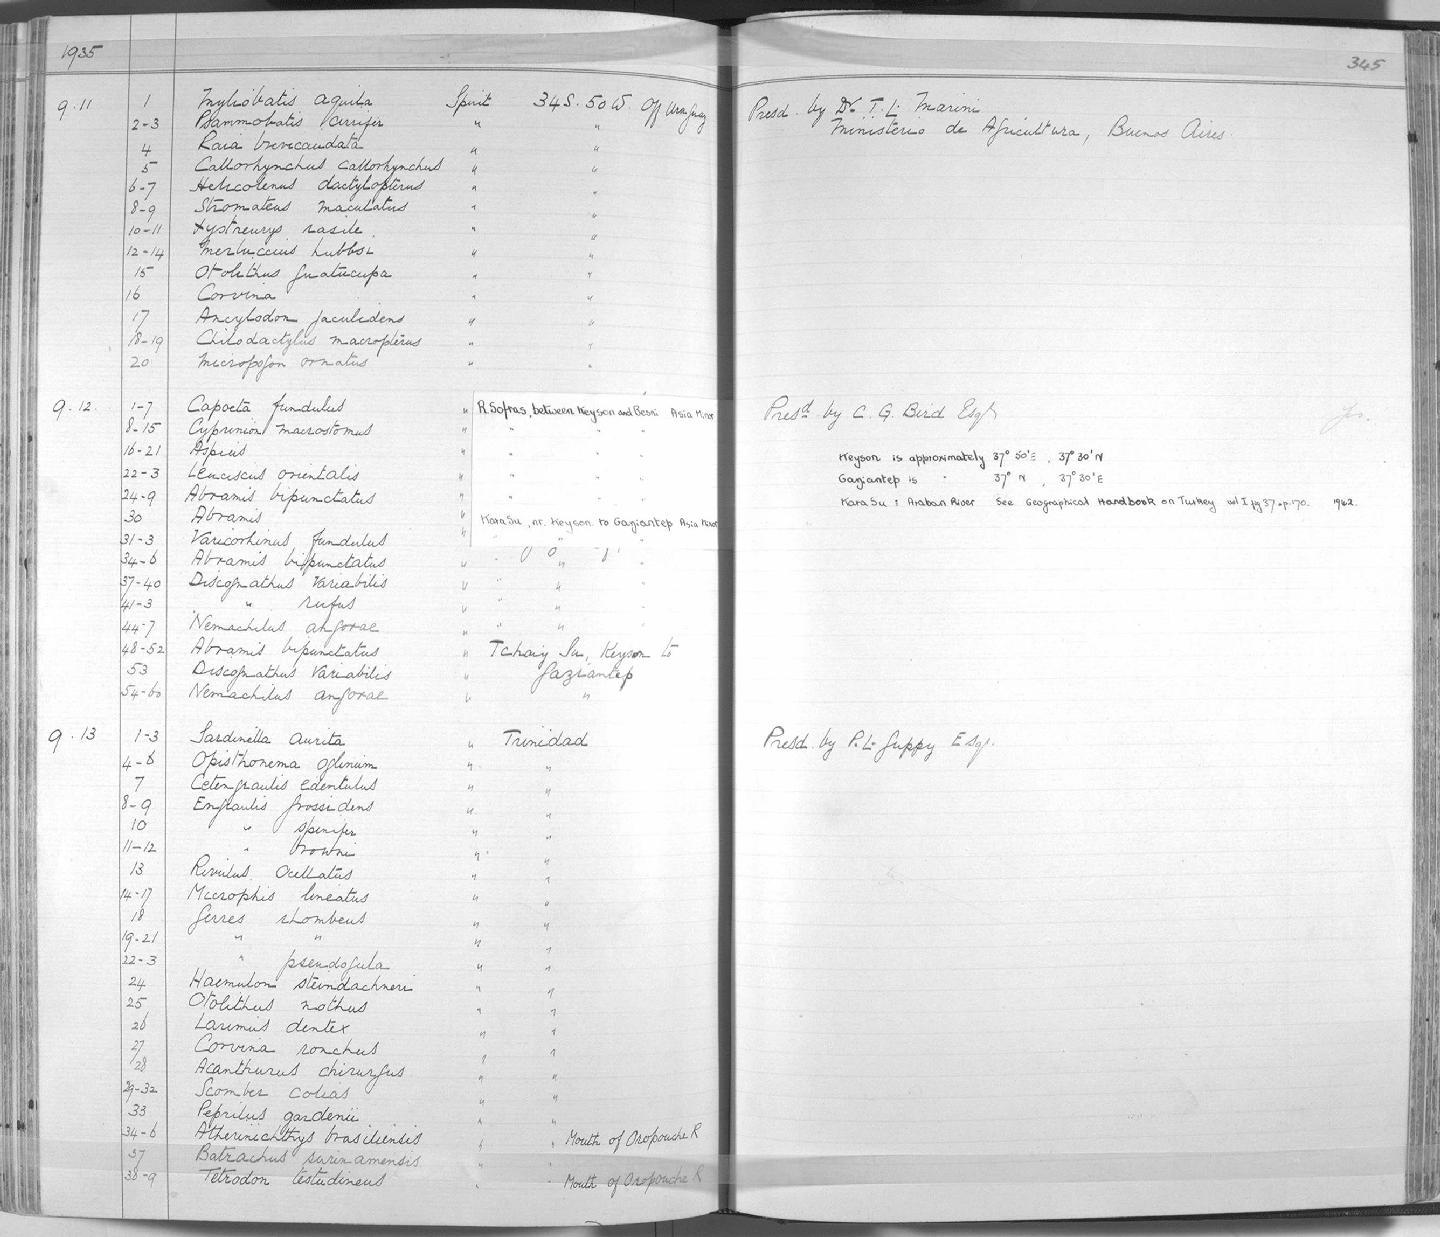 1935
345
9.11 1 Myliobatis aquila Spirit 34S. 50W. Off Uruguay Presd. by Dr. T. L. Marini
2-3 Psammobatis cirrifer " " Ministerio de Agricultura, Buenos Aires.
4 Raia brevicaudata " "
5 Callorhynchus callorhynchus " "
6-7 Helicolenus dactylopterus " "
8-9 Stromateus maculatus " "
10-11 Xystreurys rasile. " "
12-14 Merluccius hubbsi " "
15 Otolithus guatucupa " "
16 Corvina " "
17 Ancylodon jaculidens " "
18-19 Chilodactylus macropterus " "
20 Micropogon ornatus " "
9.12. 1-7 Capoeta fundulus " R. Sofras, between Keyson and Besni Asia Minor Presd by C. G. Bird Esqr
8-15 Cyprinion macrostomus " " " "
16-21 Aspius " " " "
Keyson is approximately 37° 50'E, 37° 30'N
22-3 Leuciscus orientalis " " " "
Gaziantep is " 37° N, 37° 30'E
24-9 Abramis bipunctatus " " " "
Kara Su : Araban River See Geographical Handbook on Turkey vol I fig 37 p.170. 1942.
30 Abramis " Kara Su, nr. Keyson to Gaziantep Asia Minor
31-3 Varicorhinus fundulus " " " "
34-6 Abramis bipunctatus " " " "
37-40 Discognathus variabilis " " " "
41-3 " rufus " " " "
44-7 Nemachilus angorae " " " "
48-52 Abramis bipunctatus " Tchaiy Su, Keyson to
53 Discognathus variabilis " Gaziantep
54-60 Nemachilus angorae " "
9.13 1-3 Sardinella aurita " Trinidad Presd. by P. L. Guppy Esqr.
4-6 Opisthonema oglinum " "
7 Cetengraulis edentulus " "
8-9 Engraulis grossidens " "
10 " spinifer " "
11-12 " browni " "
13 Rivulus ocellatus " "
14-17 Microphis lineatus " "
18 Gerres rhombeus " "
19-21 " " " "
22-3 " pseudogula " "
24 Haemulon steindachneri " "
25 Otolithus nothus " "
26 Larimus dentex " "
27 Corvina ronchus " "
28 Acanthurus chirurgus " "
29-32 Scomber colias " "
33 Peprilus gardenii " "
34-6 Atherinichthys brasiliensis " " Mouth of Oropouche R
37 Batrachus surinamensis " "
38-9 Tetrodon testudineus " " Mouth of Oropouche R